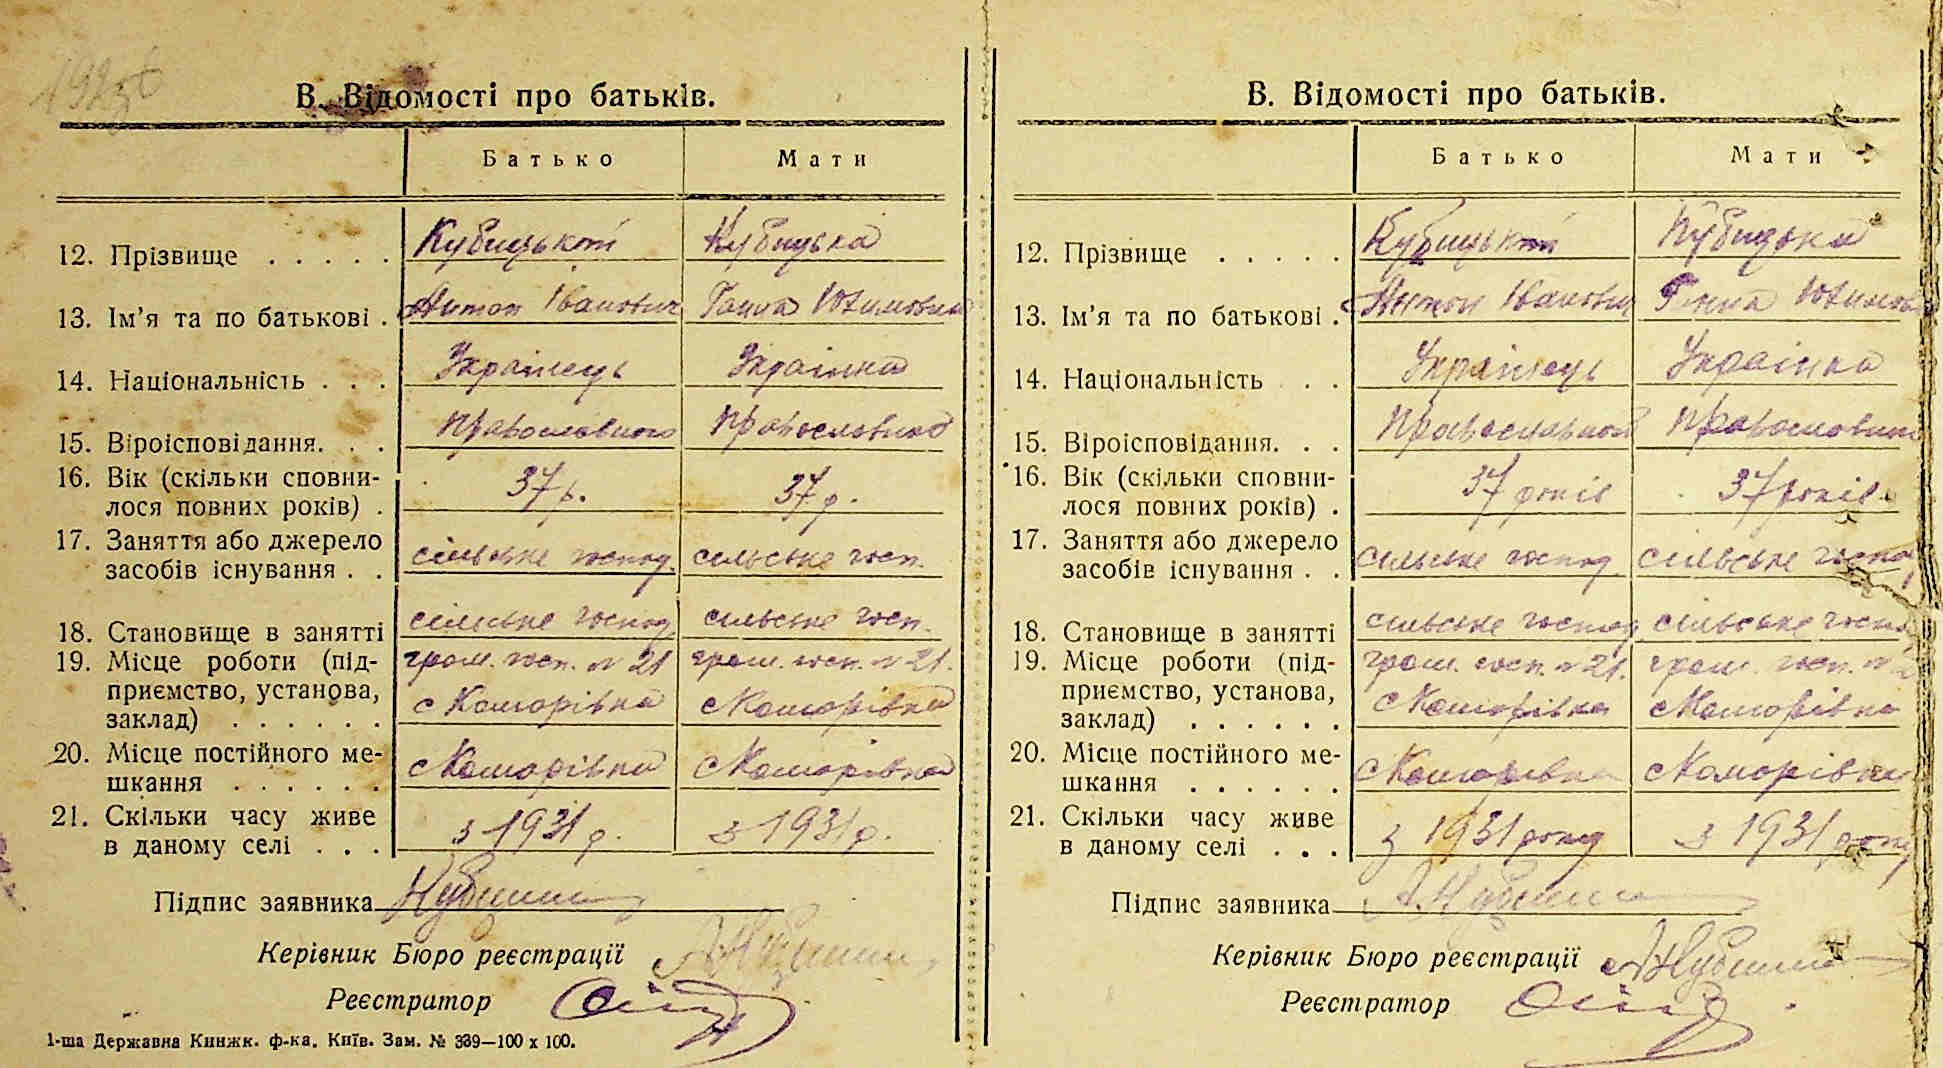 В. Відомості про батьків.
Батько Мати
12. Прізвище . . . . . Кубицький Кубицька
13. Ім'я та по батькові . Антон Іванович Ганна Юхимовна
14. Національність . . . Українець Українка
15. Віроісповідання. . . Православного Православной
16. Вік (скільки сповни- 37 р. 37 р.
лося повних років) .
17. Заняття або джерело сільське господ. сільське госп.
засобів існування . .
18. Становище в занятті сільське господ. сільське госп.
19. Місце роботи (під- гром. госп. № 21 гром. госп. № 21.
приємство, установа, с Комарівка с Комарівка
заклад) . . . . . .
20. Місце постійного ме- с Комарівка с Комарівка
шкання . . . . . .
21. Скільки часу живе з 1931 р. з 1931 р.
в даному селі . . .
Підпис заявника
Керівник Бюро реєстрації
Реєстратор
1-ша Державна Книжк. ф-ка. Київ. Зам. № 339—100 х 100.
В. Відомості про батьків.
Батько Мати
12. Прізвище . . . . . Кубицький Кубицька
13. Ім'я та по батькові . Антон Іванович Ганна Юхимовна
14. Національність . . Українець Українка
15. Віроісповідання. . . Православной Православной
16. Вік (скільки сповни- 37 років 37 років
лося повних років) .
17. Заняття або джерело сільське господ сільське господ
засобів існування . .
18. Становище в занятті сільське господ сільське госпо
19. Місце роботи (під- гром. госп. № 21. гром. госп. № 2
приємство, установа, с Комарівка с Комарівка
заклад) . . . . . .
20. Місце постійного ме- с Комарівка с Комарівка
шкання . . . . . .
21. Скільки часу живе з 1931 року з 1931 року
в даному селі . . .
Підпис заявника
Керівник Бюро реєстрації
Реєстратор